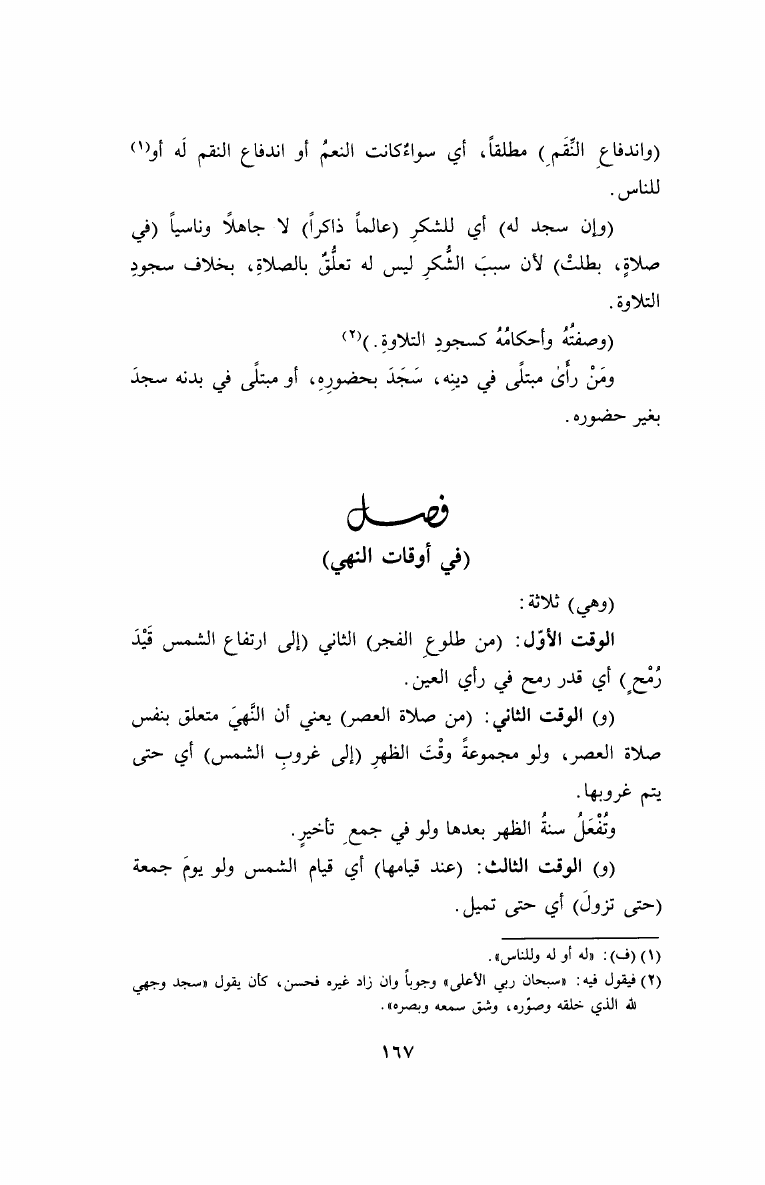 (واندفاعِ النِّقَمِ) مطلقاً، أي سواءٌكانت النعمُ أو اندفاع النقم لَه أو(١)
للناس.
(وإن سجد له) أي للشكرِ (عالماً ذاكراً) لا جاهلاً وناسياً (في
صلاةٍ، بطلتْ) لأن سببَ الشُّكرِ ليس له تعلُّقٌ بالصلاةِ، بخلاف سجودِ
التلاوة.
(وصفتُهُ وأحكامُهُ كسجودِ التلاوةِ.)(٢)
ومَنْ رأَىٰ مبتلًى في دينِه، سَجَدَ بحضورِهِ، أو مبتلًى في بدنه سجدَ
بغير حضوره.
فصل
(في أوقات النهي)
(وهي) ثلاثة:
الوقت الأوّل: (من طلوعِ الفجر) الثاني (إلى ارتفاع الشمس قَيْدَ
رُمْحٍ) أي قدر رمح في رأي العين.
(و) الوقت الثاني: (من صلاة العصر) يعني أن النَّهيَ متعلق بنفس
صلاة العصر، ولو مجموعةً وقْتَ الظهرِ (إلى غروبِ الشمس) أي حتى
يتم غروبها.
وتُفْعَلُ سنةُ الظهر بعدها ولو في جمعِ تأخيرٍ.
(و) الوقت الثالث: (عند قيامها) أي قيام الشمس ولو يومَ جمعة
(حتى تزولَ) أي حتى تميل.
(١) (ف): «له أو له وللناس».
(٢) فيقول فيه: «سبحان ربي الأعلى» وجوباً وان زاد غيره فحسن، كأن يقول «سجد وجهي
لله الذي خلقه وصوّره، وشق سمعه وبصره».
١٦٧